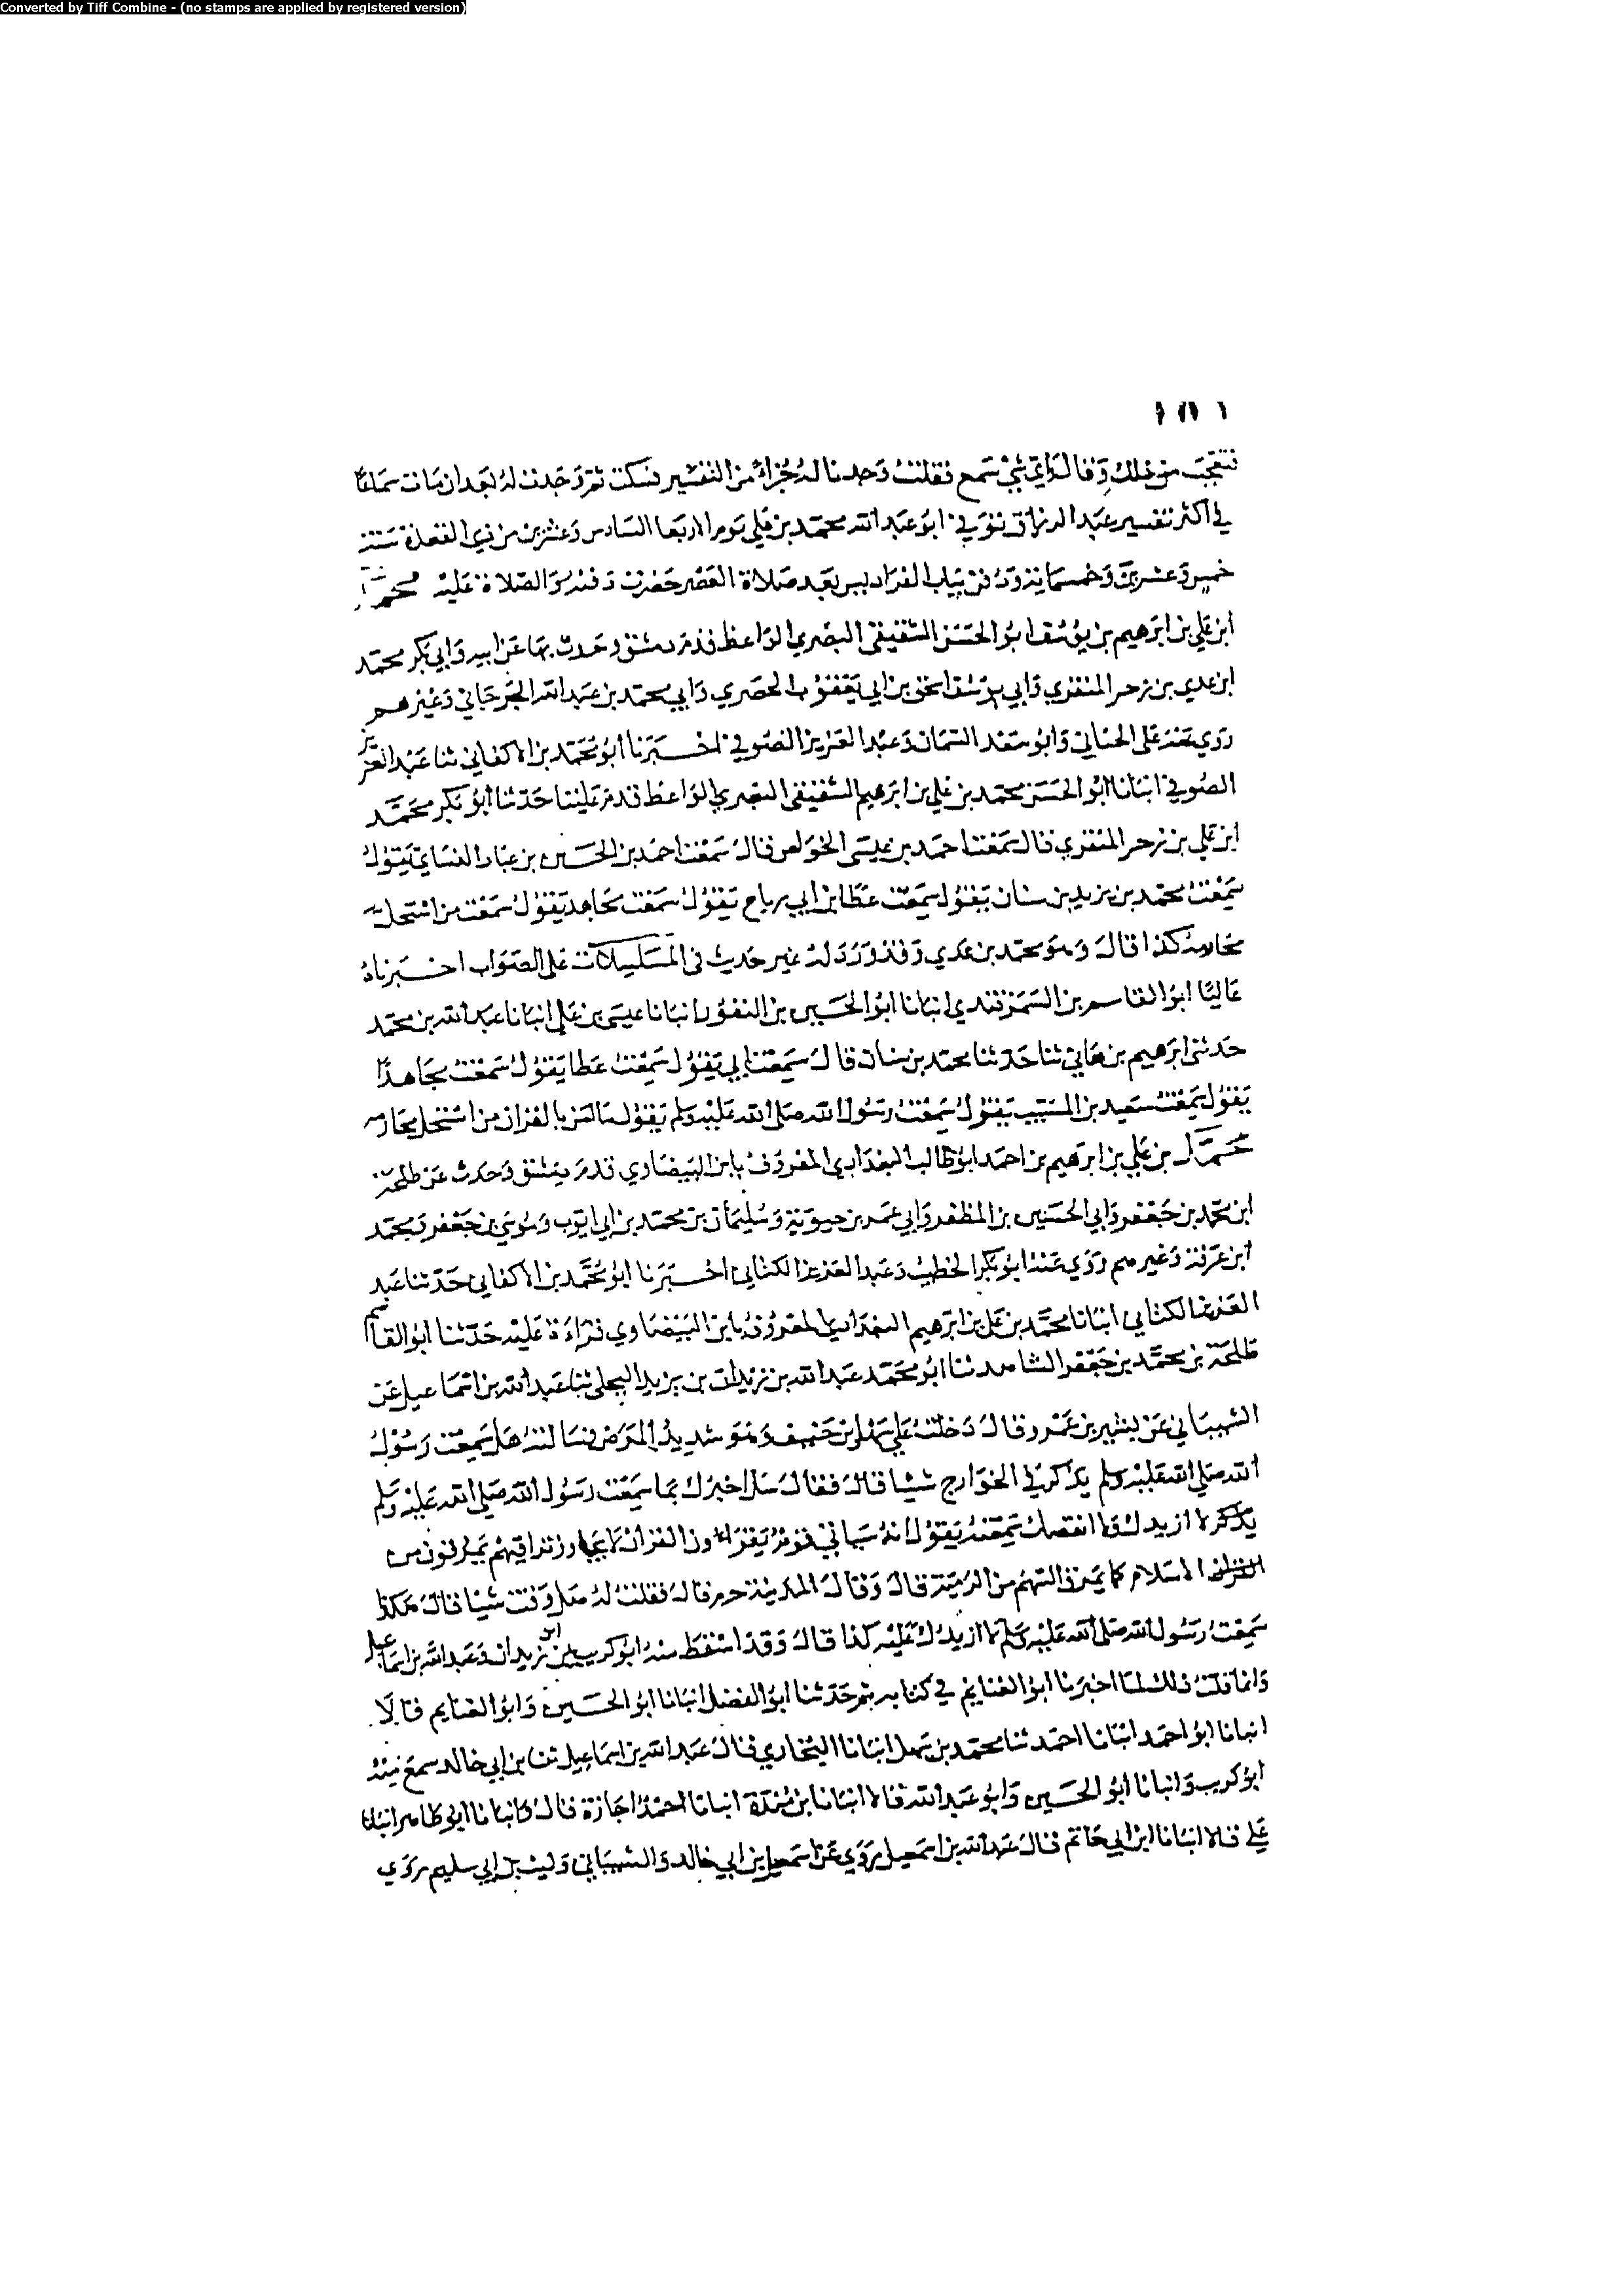 Converted by Tiff Combine - (no stamps are applied by registered version)
فتعجب من ذلك وقال واي شي سمع فقلت وجدنا له جزاء من التفسير فسكت ثم وجدت له بعد ان مات سماعا
في اكثر تفسير عبد الرزاق توفي ابو عبد الله محمد بن علي يوم الاربعا السادس وعشرين من ذي القعدة سنة
خمس وعشرين وخمسماية ودفن بباب الفراديس بعد صلاة العصر حضرت دفنه والصلاة عليه محمد
ابن علي بن ابرهيم بن يوسف ابو الحسن الثقيفي البصري الواعظ قدم دمشق وحدث بها عن ابيه وابي بكر محمد
ابن عدي بن زحر المنقري وابي اسحق بن ابي يعقوب الحصري وابي محمد بن عبد الله الجرجاني وغيرهم
روي عنه على الحنائي وابو سعد السمان وعبد العزيز الصوفي اخبرنا أبو محمد بن الاكفاني ثنا عبد العزيز
الصوفي انبانا ابو الحسن محمد بن علي بن ابرهيم الثقيفي البصري الواعظ قدم علينا حدثنا أبو بكر محمد
ابن علي بن زحر المنقري قال سمعت احمد بن عيسى الخواص قال سمعت احمد بن الحسين بن عباد النسائي يقول
سمعت محمد بن يزيد بن سنان يقول سمعت عطا بن ابي رباح يقول سمعت مجاهد يقول سمعت من استحل
محارمه كذا قال وهو محمد بن عدي وقد ورد له غير حديث في المسلسلات على الصواب اخبرناه
عاليا ابو القاسم بن السمرقندي انبانا ابو الحسين بن النقور انبانا عيسى بن علي انبانا عبد الله بن محمد
حدثني ابرهيم بن هاني ثنا حدثنا محمد بن سنان قال سمعت ابي يقول سمعت عطا يقول سمعت مجاهدا
يقول سمعت سعيد بن المسيب يقول سمعت رسول الله صلى الله عليه وسلم يقول ما امن بالقران من استحل محارمه
محمد بن علي بن ابرهيم بن احمد ابو طالب البغدادي المعروف بابن البيضاوي قدم دمشق وحدث عن طلحة
ابن محمد بن جعفر وابي الحسين بن المظفر وابي عمر بن حيوية وسليمان بن محمد بن ابي ايوب وموسى بن جعفر بن محمد
ابن عرفة وغيرهم روي عنه ابو بكر الخطيب وعبد العزيز الكتاني اخبرنا ابو محمد بن الاكفاني حدثنا عبد
العزيز الكتاني انبانا محمد بن علي بن ابرهيم البغدادي المعروف بابن البيضاوي قراءة عليه حدثنا ابو القاسم
طلحة بن محمد بن جعفر الشاهد ثنا ابو محمد عبد الله بن زيدان بن يزيد البجلي ثنا عبد الله بن اسماعيل عن
الشيباني عن بشير بن عمرو قال دخلت علي سهل بن حنيف وهو شديد المرض فسالته هل سمعت رسول
الله صلى الله عليه وسلم يذكر في الخوارج شيا قال فقال سلا اخبرك بما سمعت رسول الله صلى الله عليه وسلم
يذكر لا ازيدك ولا انقصك سمعته يقول انه سياتي قوم يقرؤون القران لا يجاوز تراقيهم يمرقون من
الاسلام كما يمرق السهم من الرمية قال وقال المدينة حرم قال فقلت له هل وقت شيا قال هكذا
سمعت رسول الله صلى الله عليه وسلم لا ازيدك عليه كذا قال وقد اسقط منه ابو كريب بين ابن زيدان وعبد الله بن اسماعيل
وانما قلت ذلك لما اخبرنا ابو الغنايم في كتابه ثم حدثنا ابو الفضل انبانا ابو الحسين وابو الغنايم قالا
انبانا ابو احمد انبانا احمد ثنا محمد بن سهل انبانا البخاري قال عبد الله بن اسماعيل ثنا بن ابي خالد سمع منه
ابو كريب وانبانا ابو الحسين وابو عبد الله قالا انبانا بن مندة انبانا احمد اجازة قال وانبانا ابو طاهر انبانا
علي قالا انبانا ابن ابي حاتم قال عبد الله بن اسمعيل روي عن اسمعيل بن ابي خالد والشيباني وليث بن ابي سليم روي